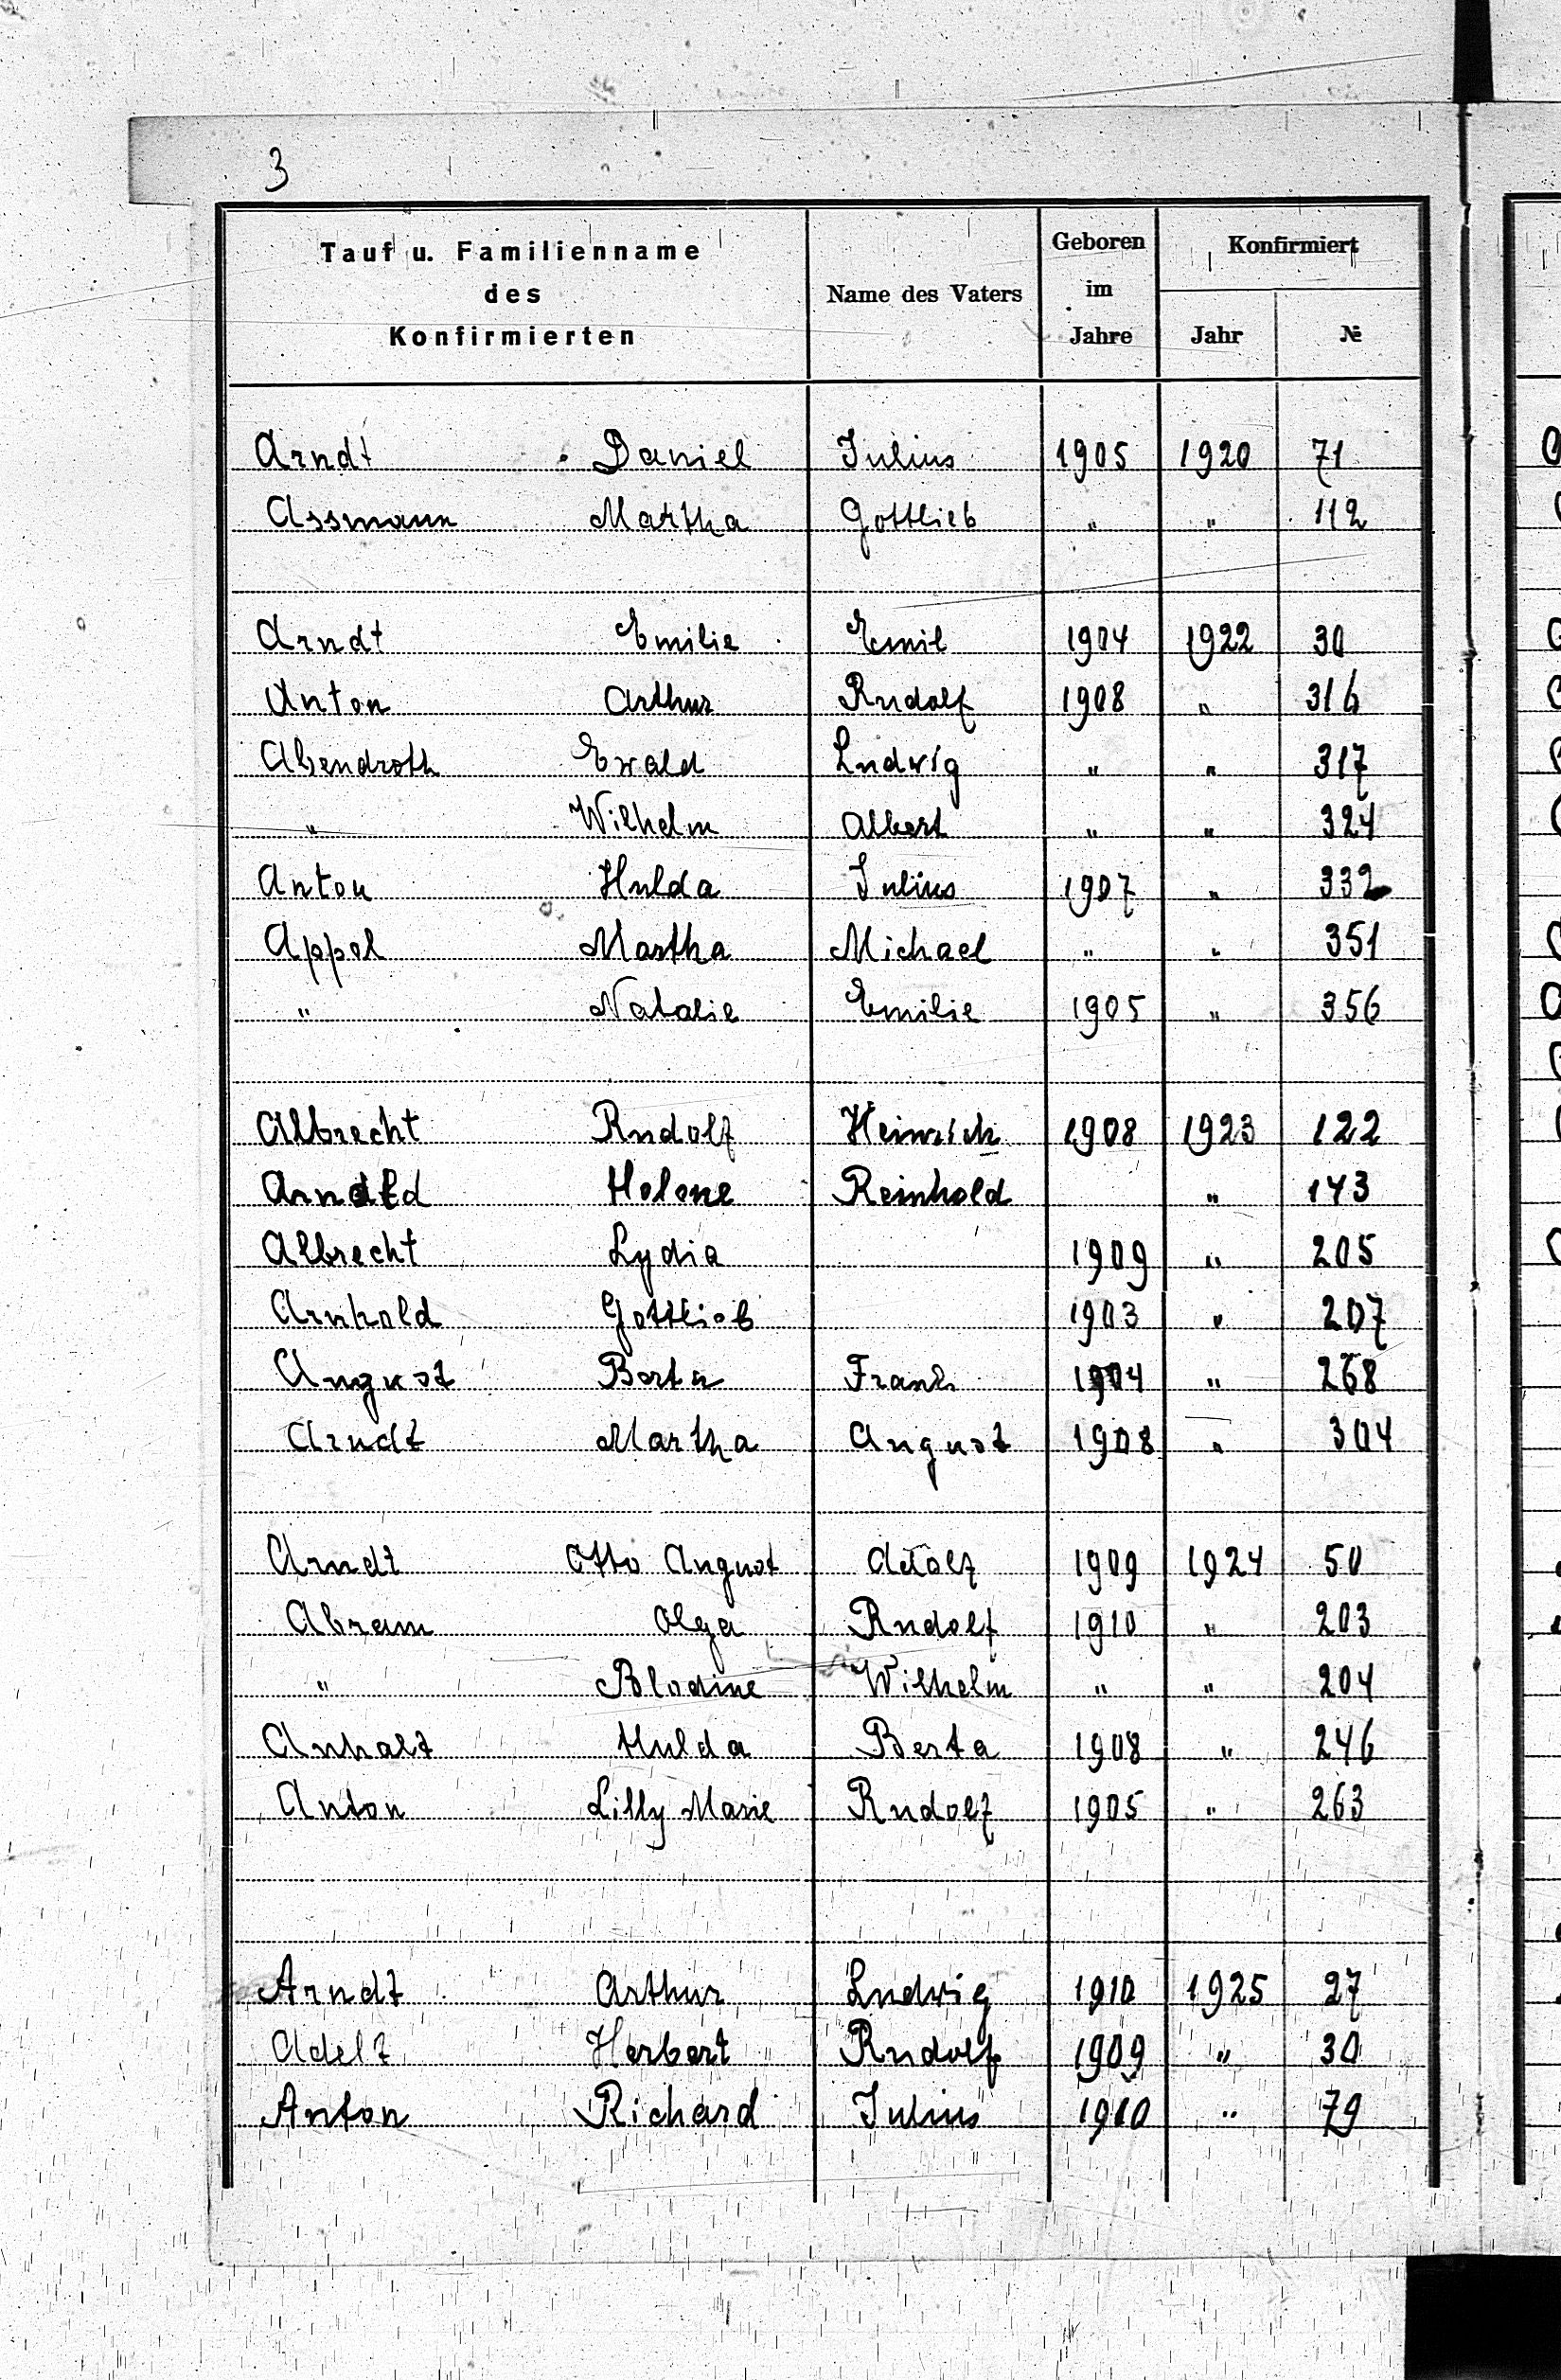 3
Tauf u. Familienname des Konfirmierten Name des Vaters Geboren im Jahre Konfirmiert Jahr №
Arndt Daniel Julius 1905 1920 71
Assmann Martha Gottlieb " " 112
Arndt Emilie Emil 1904 1922 30
Anton Arthur Rudolf 1908 " 316
Abendroth Ewald Ludwig " " 317
" Wilhelm Albert " " 324
Anton Hulda Julius 1907 " 332
Appel Martha Michael " " 351
" Natalie Emilie 1905 " 356
Albrecht Rudolf Heinrich 1908 1923 122
Helene Reinhold " 143
Albrecht Lydia 1909 " 205
Arnhold Gottlieb 1903 " 207
August Berta Frank 1904 " 268
Arndt Martha August 1908 " 304
Arndt Otto August Adolf 1909 1924 50
Abram Olga Rudolf 1910 " 203
" Blodine Wilhelm " " 204
Anhalt Hulda Berta 1908 " 246
Anton Lilly Marie Rudolf 1905 " 263
Arndt Arthur Ludwig 1910 1925 27
Adelt Herbert Rudolf 1909 " 30
Anton Richard Julius 1910 " 79